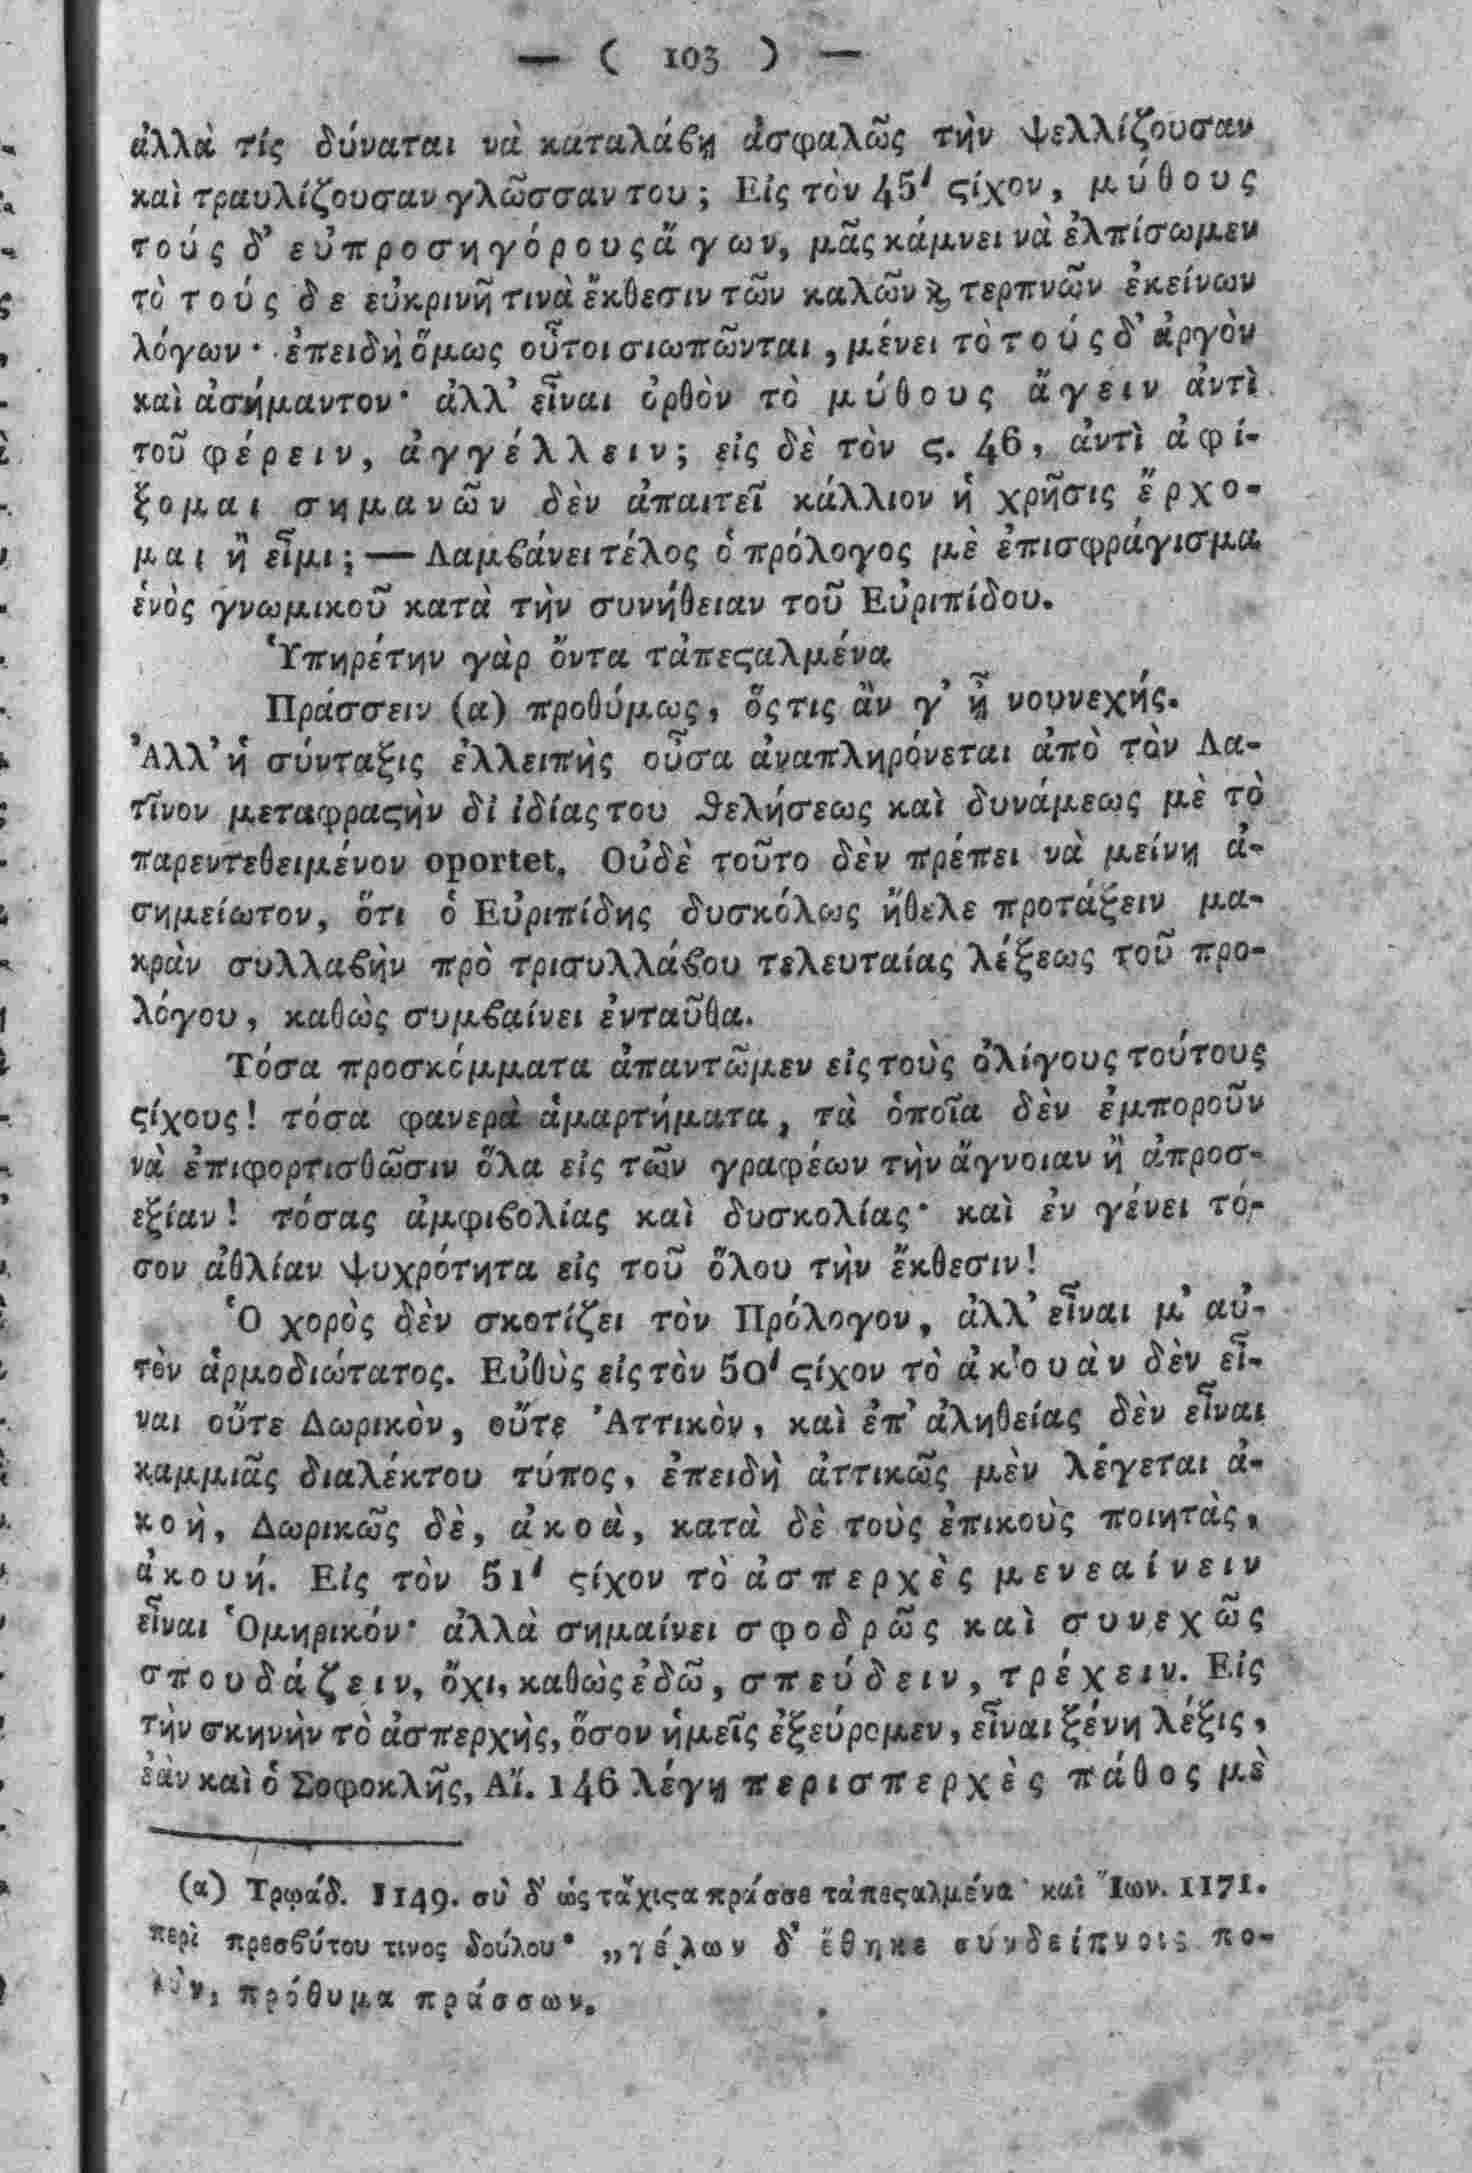 — ( 103 ) —
ἀλλὰ τίς δύναται νὰ καταλάβῃ ἀσφαλῶς τὴν ψελλίζουσαν
καὶ τραυλίζουσαν γλῶσσαν του; Εἰς τὸν 45' ϛίχον, μύθους
τούς δ' εὐπροσηγόρους ἄγων, μᾶς κάμνει νὰ ἐλπίσωμεν
τὸ τούς δε εὐκρινῆ τινὰ ἔκθεσιν τῶν καλῶν ϗ τερπνῶν ἐκείνων
λόγων· ἐπειδὴ ὅμως οὗτοι σιωπῶνται, μένει τὸ τούς δ' ἀργὸν
καὶ ἀσήμαντον· ἀλλ' εἶναι ὀρθὸν τὸ μύθους ἄγειν ἀντὶ
τοῦ φέρειν, ἀγγέλλειν; εἰς δὲ τὸν ϛ. 46, ἀντὶ ἀφί-
ξομαι σημανῶν δὲν ἀπαιτεῖ κάλλιον ἡ χρῆσις ἔρχο-
μαι ἢ εἶμι; — Λαμβάνει τέλος ὁ πρόλογος μὲ ἐπισφράγισμα
ἑνὸς γνωμικοῦ κατὰ τὴν συνήθειαν τοῦ Εὐριπίδου.
Ὑπηρέτην γὰρ ὄντα τἀπεϛαλμένα
Πράσσειν (α) προθύμως, ὅςτις ἂν γ' ᾖ νουνεχής.
Ἀλλ' ἡ σύνταξις ἐλλειπὴς οὖσα ἀναπληρόνεται ἀπὸ τὸν Λα-
τῖνον μεταφραϛὴν δἰ ἰδίας του θελήσεως καὶ δυνάμεως μὲ τὸ
παρεντεθειμένον oportet. Οὐδὲ τοῦτο δὲν πρέπει νὰ μείνῃ ἀ-
σημείωτον, ὅτι ὁ Εὐριπίδης δυσκόλως ἤθελε προτάξειν μα-
κρὰν συλλαβὴν πρὸ τρισυλλάβου τελευταίας λέξεως τοῦ προ-
λόγου, καθὼς συμβαίνει ἐνταῦθα.
Τόσα προσκόμματα ἀπαντῶμεν εἰς τοὺς ὀλίγους τούτους
ϛίχους! τόσα φανερὰ ἁμαρτήματα, τὰ ὁποῖα δὲν ἐμποροῦν
νὰ ἐπιφορτισθῶσιν ὅλα εἰς τῶν γραφέων τὴν ἄγνοιαν ἢ ἀπροσ-
εξίαν! τόσας ἀμφιβολίας καὶ δυσκολίας· καὶ ἐν γένει τό-
σον ἀθλίαν ψυχρότητα εἰς τοῦ ὅλου τὴν ἔκθεσιν!
Ὁ χορὸς δὲν σκοτίζει τὸν Πρόλογον, ἀλλ' εἶναι μ' αὐ-
τὸν ἁρμοδιώτατος. Εὐθὺς εἰς τὸν 50' ϛίχον τὸ ἀκ'ουὰν δὲν εἶ-
ναι οὔτε Δωρικὸν, οὔτε Ἀττικὸν, καὶ ἐπ' ἀληθείας δὲν εἶναι
καμμιᾶς διαλέκτου τύπος, ἐπειδὴ ἀττικῶς μὲν λέγεται ἀ-
κοὴ, Δωρικῶς δὲ, ἀκοὰ, κατὰ δὲ τοὺς ἐπικοὺς ποιητὰς,
ἀκουή. Εἰς τὸν 51' ϛίχον τὸ ἀσπερχὲς μενεαίνειν
εἶναι Ὁμηρικόν· ἀλλὰ σημαίνει σφοδρῶς καὶ συνεχῶς
σπουδάζειν, ὄχι, καθὼς ἐδῶ, σπεύδειν, τρέχειν. Εἰς
τὴν σκηνὴν τὸ ἀσπερχὴς, ὅσον ἡμεῖς ἐξεύρομεν, εἶναι ξένη λέξις,
ἐὰν καὶ ὁ Σοφοκλῆς, Αἴ. 146 λέγῃ περισπερχὲς πάθος μὲ
(α) Τρῳάδ. 1149. σὺ δ' ὡς τάχιϛα πράσσε τἀπεϛαλμένα· καὶ Ἴων. 1171.
περὶ πρεσβύτου τινος δούλου· „γέλων δ' ἔθηκε συνδείπνοις πο-
λὺν, πρόθυμα πράσσων.